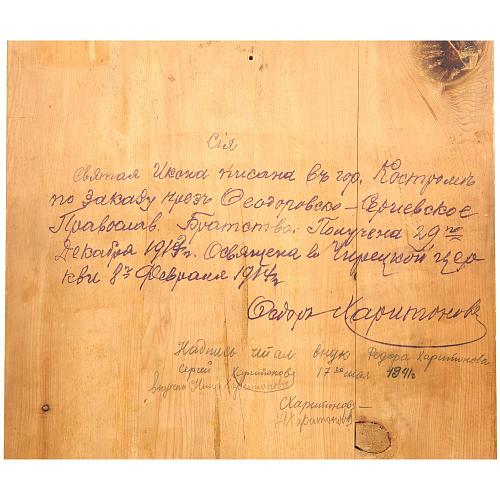 Сія
Святая Икона писана въ гор. Костромѣ
по заказу чрезъ Феодоровско-Сергиевское
Православ. Братство. Получена 29го
Декабря 191 г. Освящена в цер
кви 8го Февраля 1917г
Федоръ Харитоновъ
Надпись читал внук Федора Харитонова
Сергей Харитонов 17го мая
внучка Нина Харитонова
СХаритонов
НХаритонова